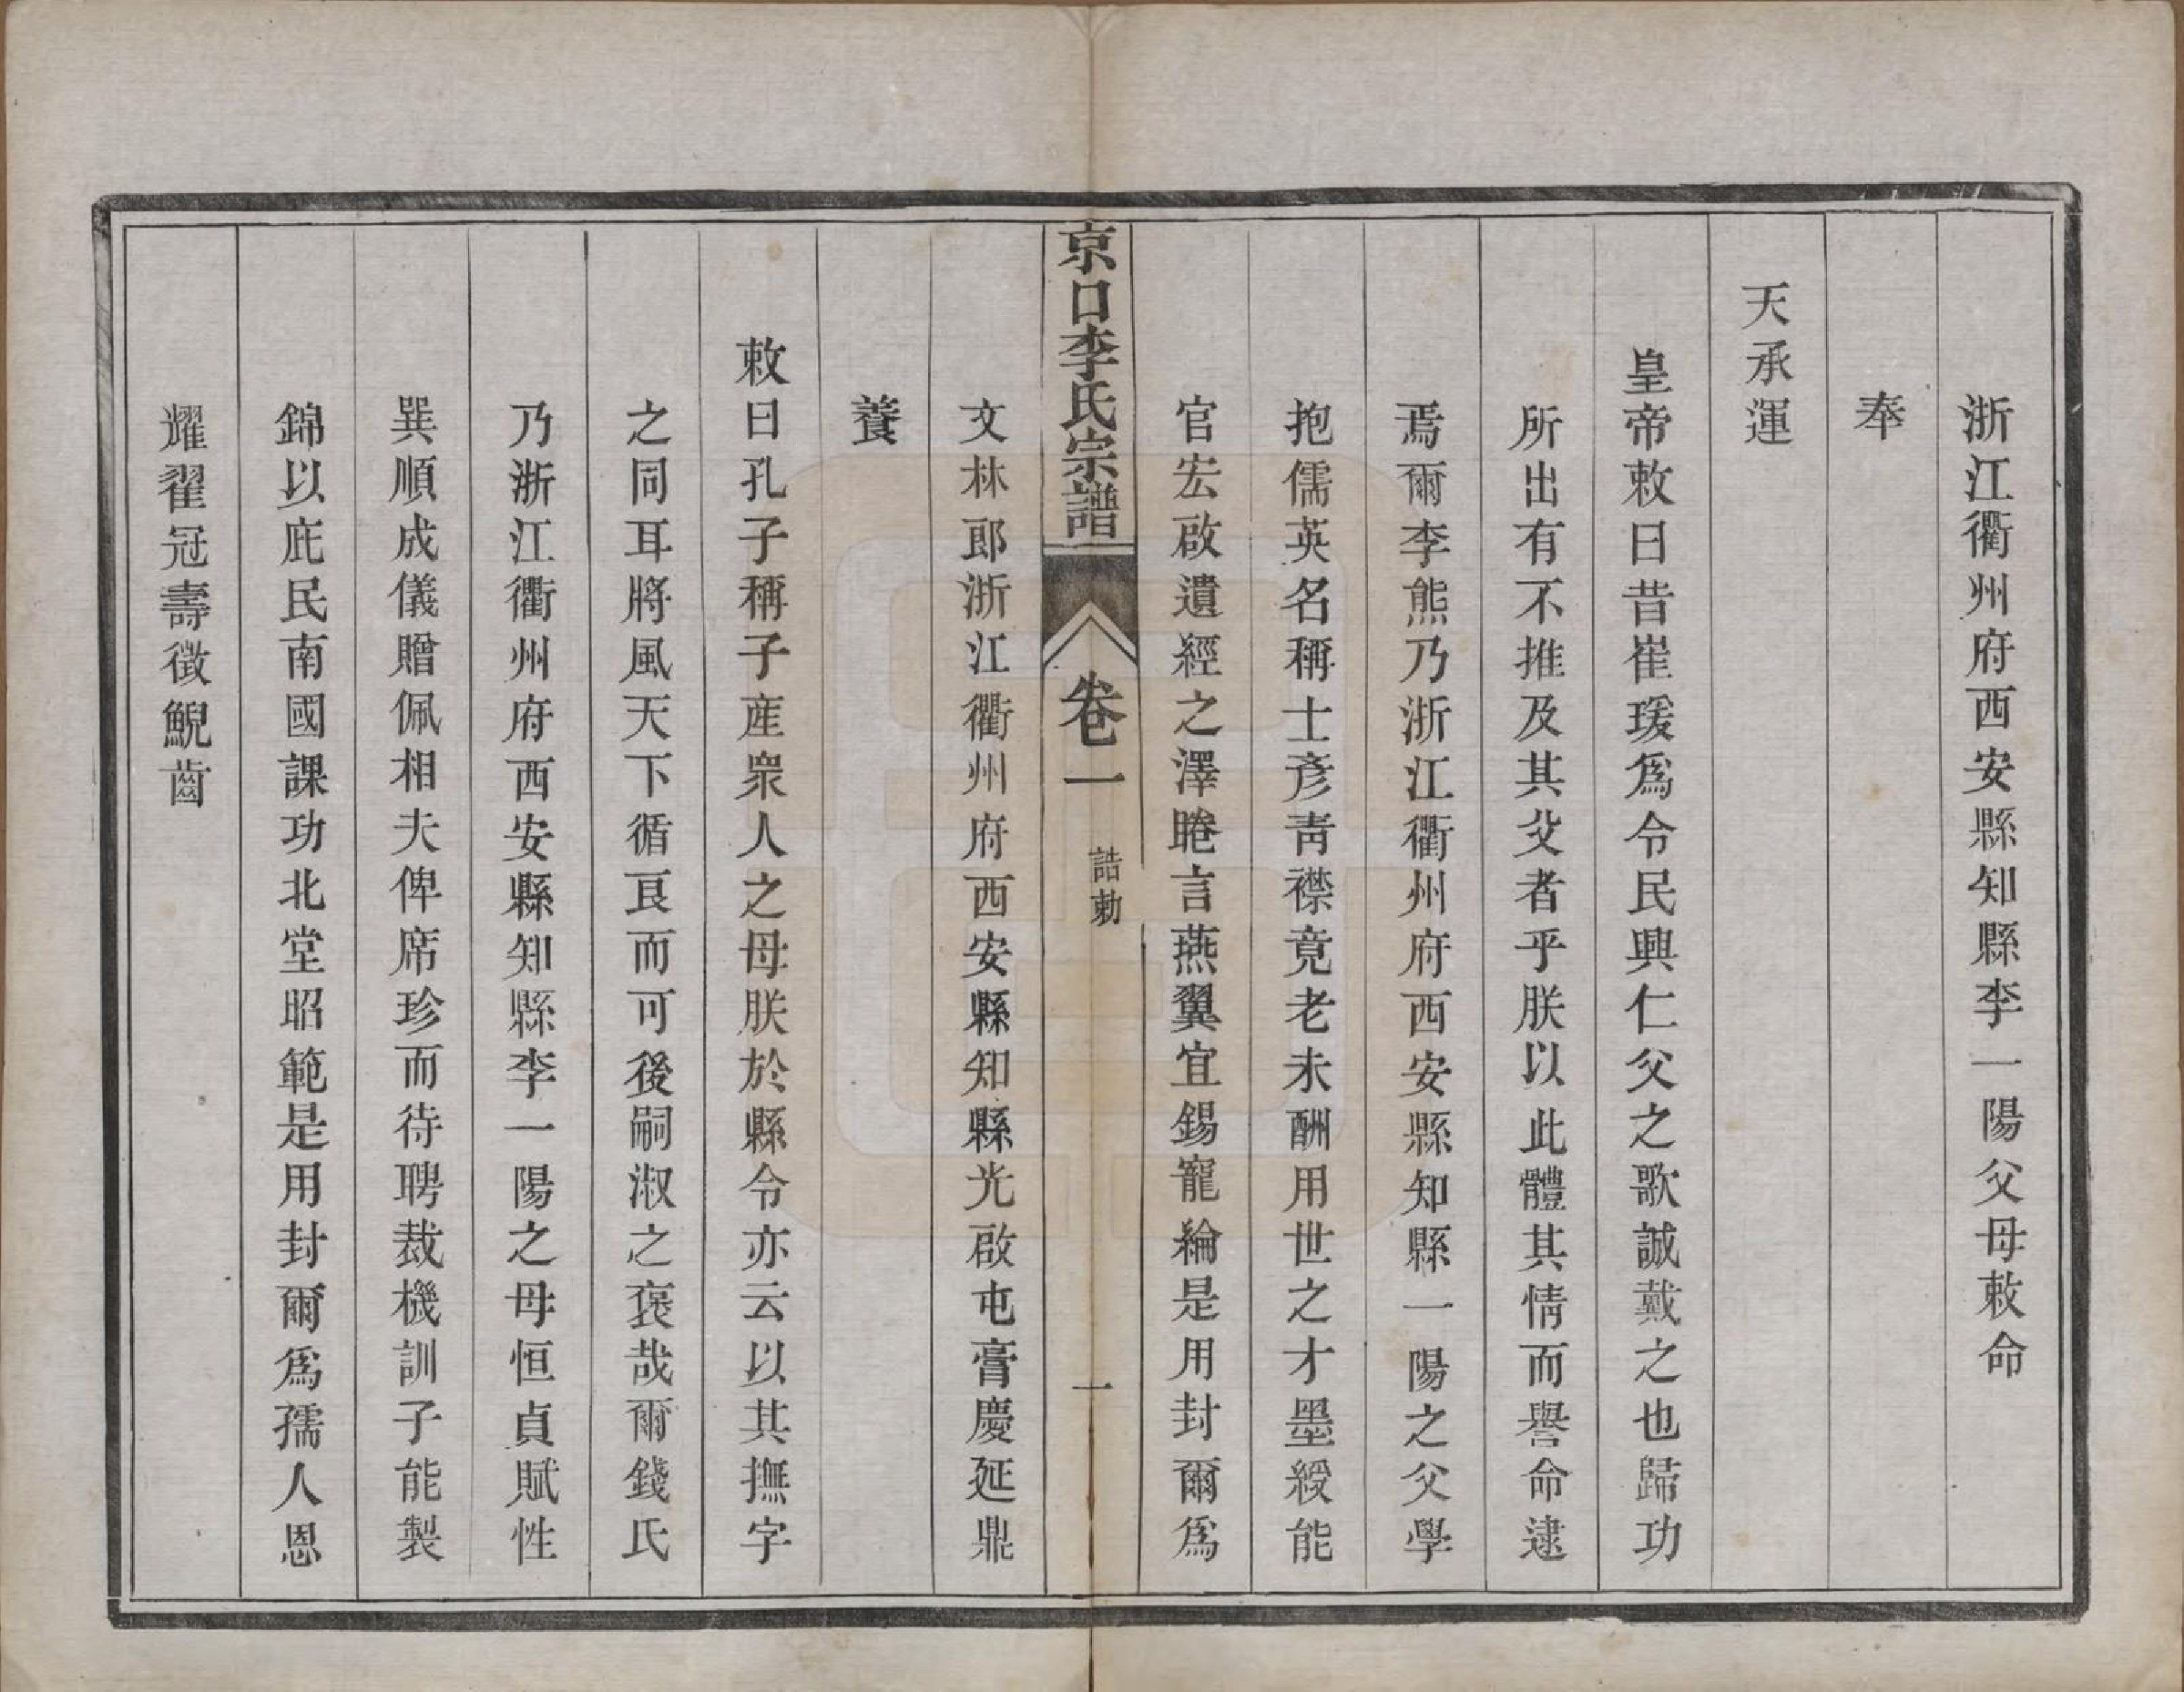 浙江衢州府西安縣知縣李一陽父母敕命
奉
天承運
皇帝敕曰昔崔瑗爲令民興仁父之歌誠戴之也歸功
所出有不推及其父者乎朕以此體其情而譽命逮
焉爾李熊乃浙江衢州府西安縣知縣一陽之父學
抱儒英名稱士彥靑襟竟老未酬用世之才墨綬能
官宏啟遺經之澤睠言燕翼宜錫寵綸是用封爾爲
京口李氏宗譜
卷一
誥勅
一
文林郎浙江衢州府西安縣知縣光啟屯膏慶延鼎
養
敕曰孔子稱子產衆人之母朕於縣令亦云以其撫字
之同耳將風天下循良而可後嗣淑之褒哉爾錢氏
乃浙江衢州府西安縣知縣李一陽之母恒貞賦性
巽順成儀贈佩相夫俾席珍而待聘裁機訓子能製
錦以庇民南國課功北堂昭範是用封爾爲孺人恩
耀翟冠壽徵鯢齒